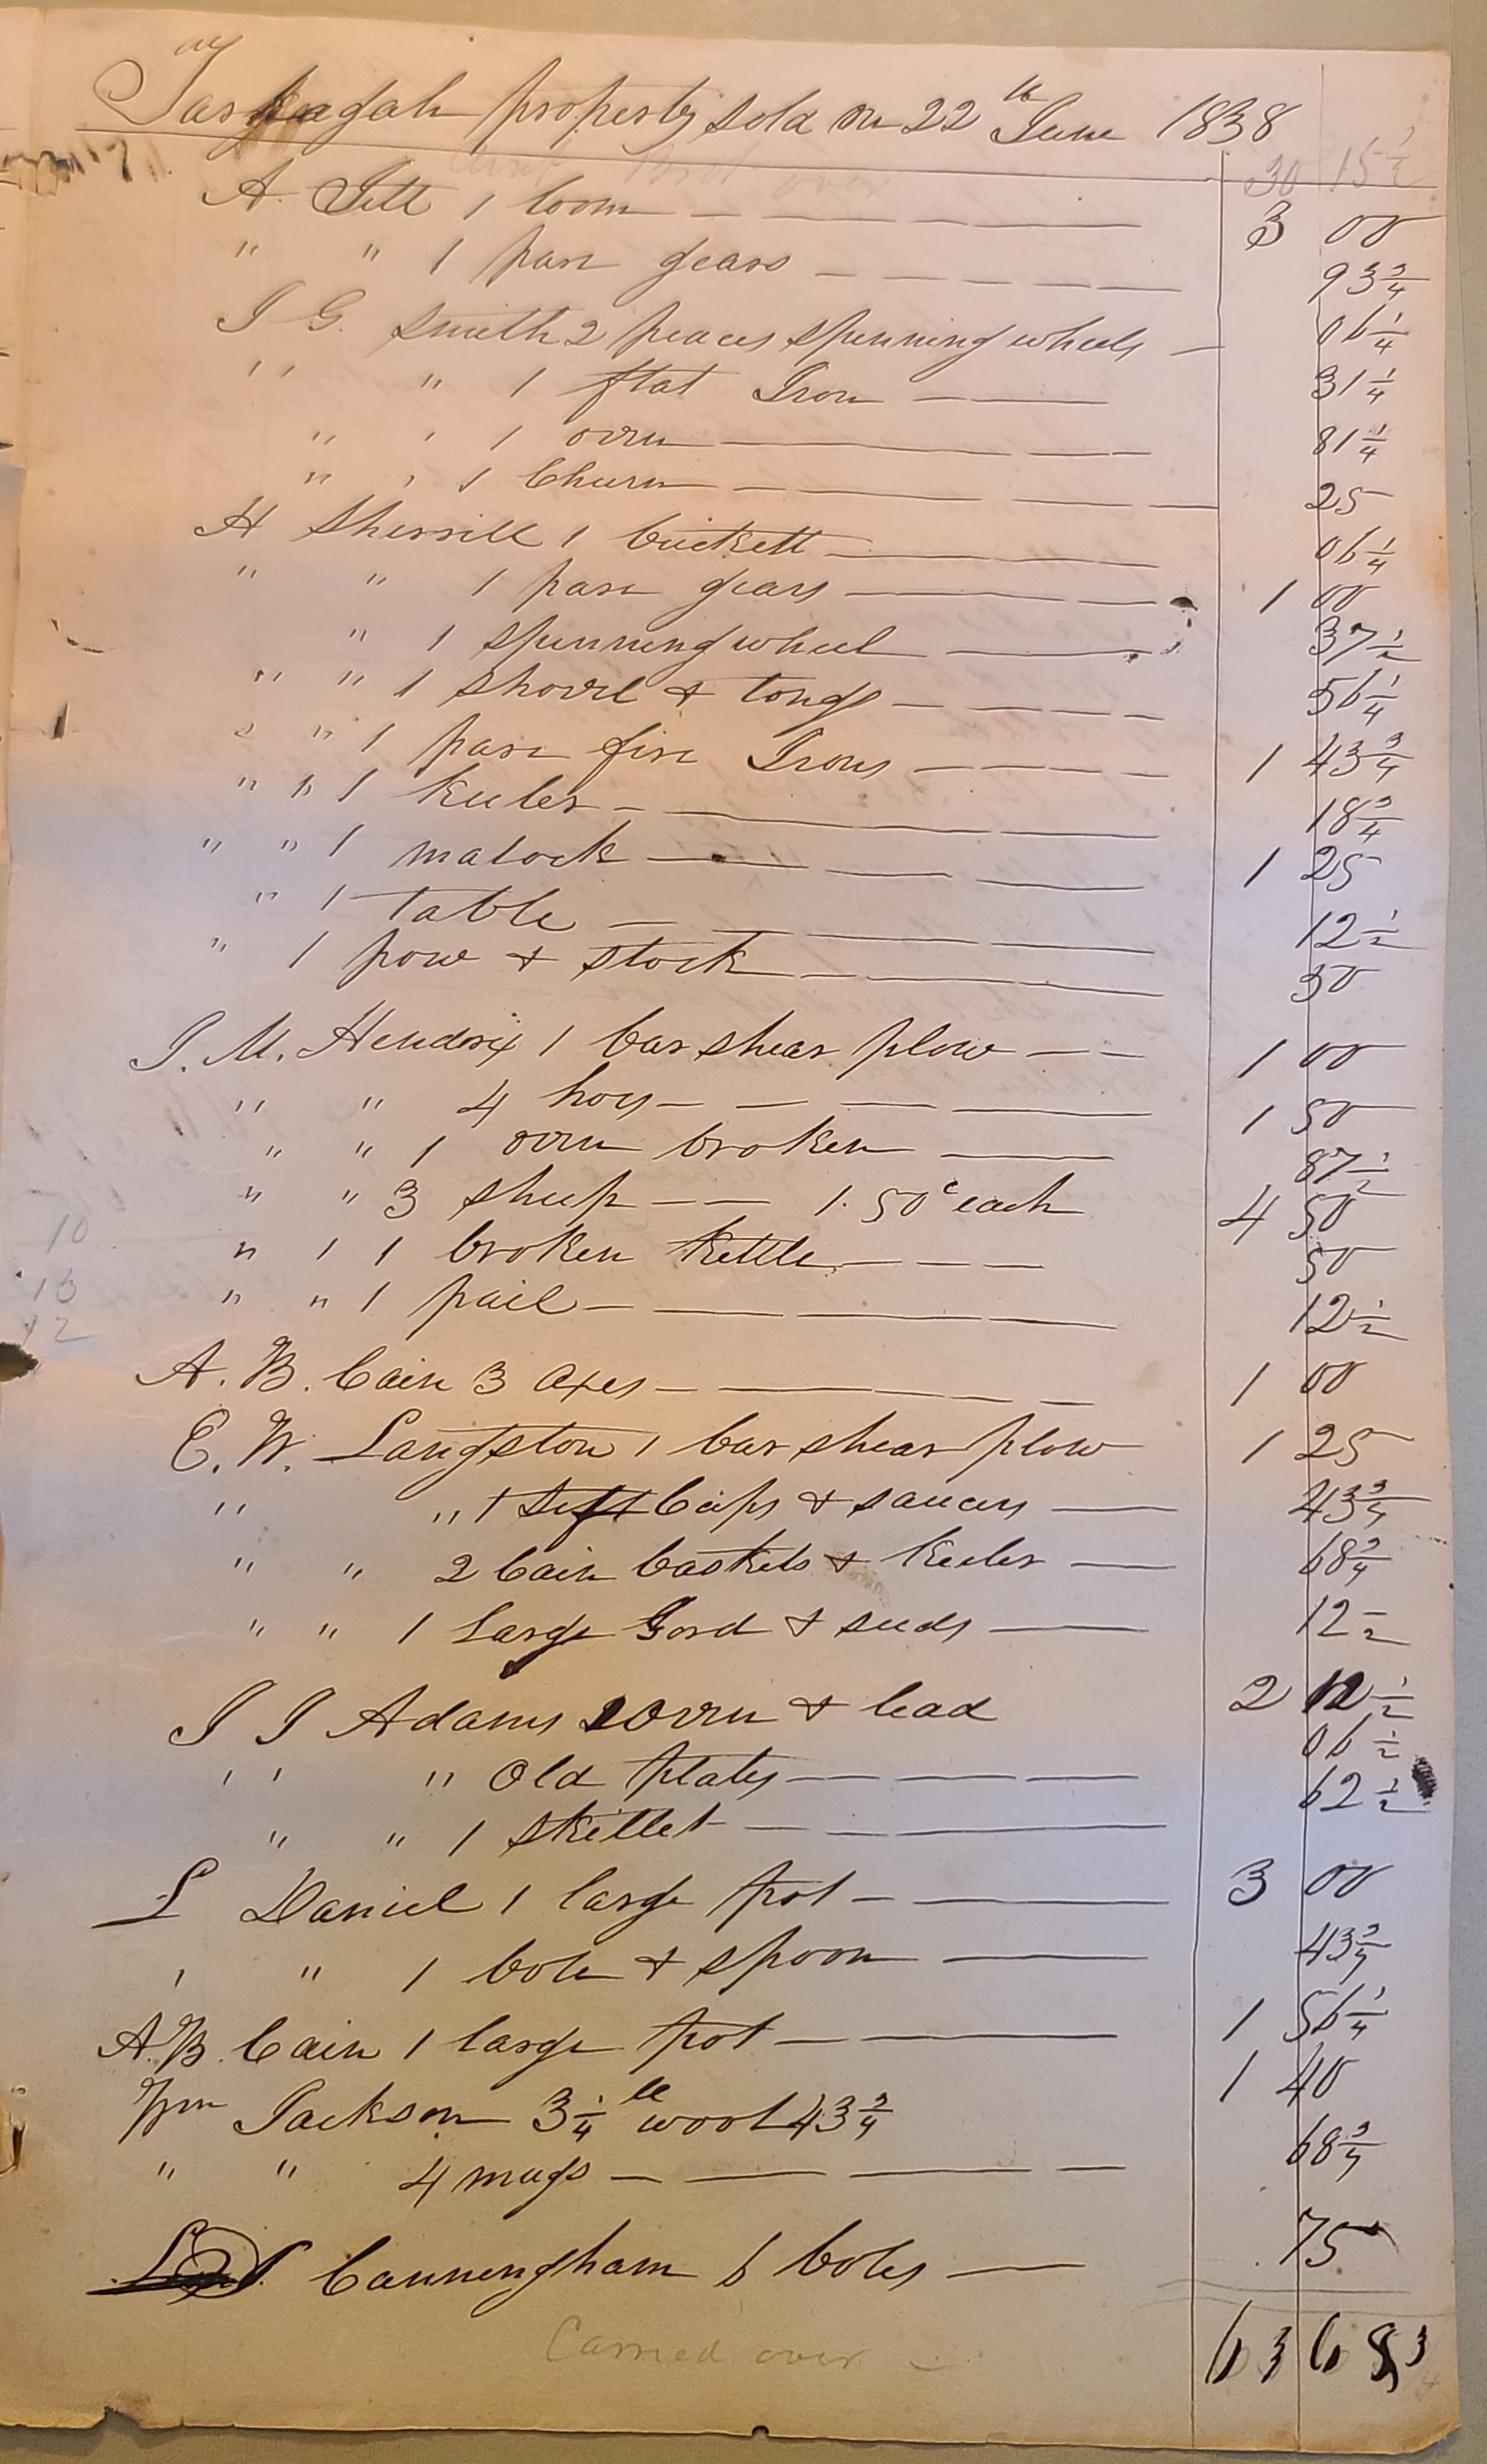 property sold on 22th June 1838
30 15 1/2
A. Titt 1 loom — — — 3 00
" " 1 pare gears — — — — 93 3/4
J G. Smith 2 peaces spinning wheels — 06 1/4
" " 1 flat Iron — — 31 1/4
" " 1 oven — — — 81 1/4
" " 1 Churn — — — 25
H Sherrill 1 buckett — — — 06 1/4
" " 1 pare gears — — — 1 00
" 1 spinning wheel — — 37 1/2
" " 1 shovel & tongs — — — — 56 1/4
" " 1 pare fire Irons — — — — 1 43 3/4
" " 1 keeler — — — — 18 3/4
" " 1 matock — — — — 1 25
" 1 table — — — — 12 1/2
" 1 pow & stock — — — 50
J. M. Hendrix 1 bar shear plow — — 1 00
" " 4 hoes — — — — 1 50
" " 1 oven broken — — 87 1/2
" " 3 sheep — — 1.50c each 4 50
" " 1 broken kettle — — — 50
" " 1 pail — — — — 12 1/2
A. B. Cain 3 axes — — — — 1 00
E. W. Langston 1 bar shear plow 1 25
" " 1 Sett Cups & saucers — 43 3/4
" " 2 Cain baskets & keeler — 68 3/4
" " 1 Large Gord & seeds — 12 1/2
J J Adams 2 oven & lead 2 12 1/2
" " " Old plates — — — — 06 1/2
" " 1 skillet — — — 62 1/2
L Daniel 1 large pot — — 3 00
" " 1 bole & spoon — 43 3/4
A. B. Cain 1 large pot — — 1 56 1/4
Wm Jackson 3 1/4 lb wool 43 3/4 1 40
" " 4 mugs — — — — 68 3/4
Cunningham 6 boles — 75
Carried over — 63 68 3